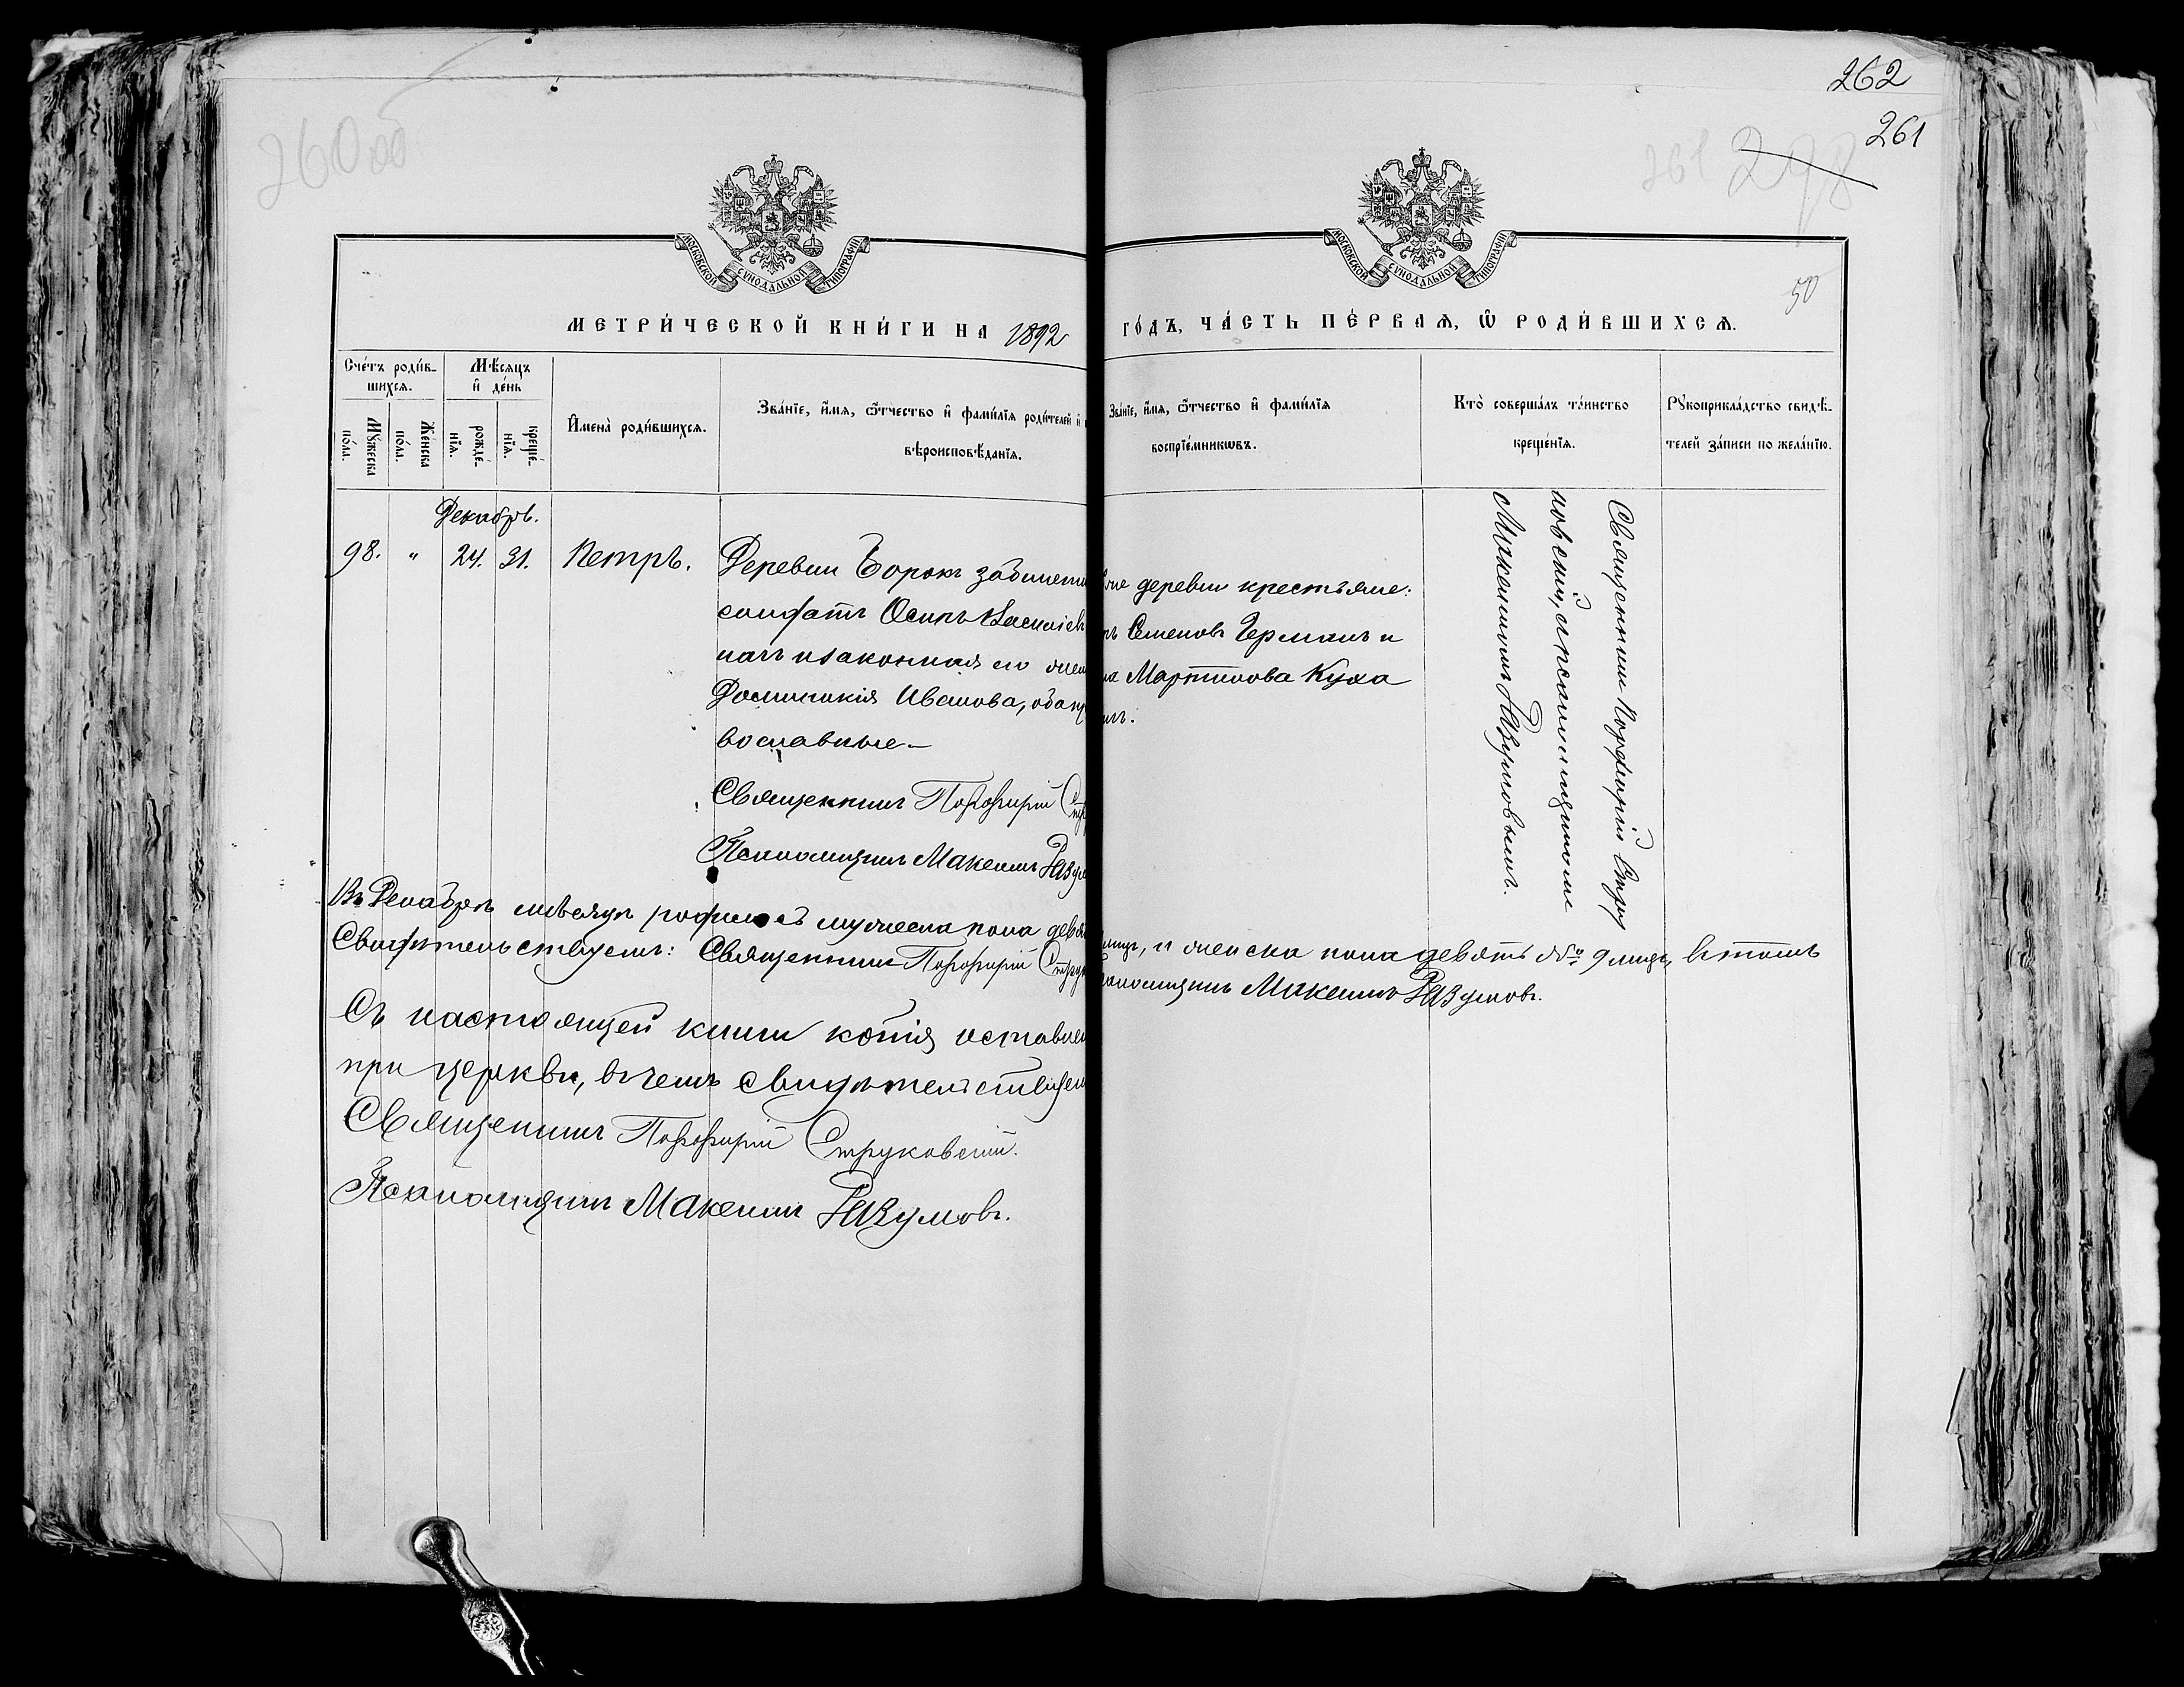 260 об
262
261
261
298
50
МОСКОВСКОЙ СѴНОДАЛЬНОЙ ТИПОГРАФІИ
МОСКОВСКОЙ СѴНОДАЛЬНОЙ ТИПОГРАФІИ
МЕТРИ́ЧЕСКОЙ КНИ́ГИ НА 1892
ГО́ДЪ, ЧА́СТЬ ПЕ́РВАѦ, Ѽ РОДИ́ВШИХСѦ.
Сче́тъ роди́в-
шихсѧ.
Мꙋ́жеска
по́ла.
Же́нска
по́ла.
Мѣ́сѧцъ
и҆ де́нь
рожде́-
нїѧ.
креще́-
нїѧ.
И҆мена̀ роди́вшихсѧ.
Зва́нїе, и҆́мѧ, ѻ҆́тчество и҆ фами́лїѧ роди́телей и҆
вѣроисповѣ́данїѧ.
Зва́нїе, и҆́мѧ, ѻ҆́тчество и҆ фами́лїѧ
воспрїе́мникѡвъ.
Кто̀ соверша́лъ та́инство
креще́нїѧ.
Рꙋкоприкла́дство свидѣ́-
телей за́писи по жела́нїю.
Декабрь.
98. " 24. 31. Петръ.
Деревни Борокъ
солдатъ Осипъ Василіев
и законная его жен
Иванова, оба пр
вославные.
Священникъ Порфирій Стр
Псаломщикъ Максимъ Разум
деревни крестьяне:
Семеновъ Германъ и
Мартинова Куха
Священникъ Порфирій Стру
ковскій, съ псаломщикомъ
Максимомъ Разумовымъ.
Въ Декабрѣ мѣсяцѣ родилось мужеска пола девя
лицъ, и женска пола девять 9 лицъ, въ томъ
Свидѣтельствуемъ: Священникъ Порфирій Струк
Псаломщикъ Максимъ Разумовъ.
Съ настоящей книги копія оставлен
при церкви, въ чемъ свидѣтельствуем
Священникъ Порфирій Струковскій.
Псаломщикъ Максимъ Разумовъ.